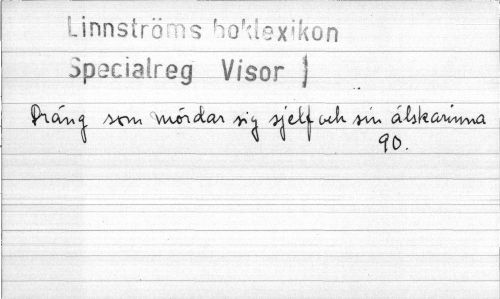 Linnströms boklexikon
Specialreg Visor )
Dräng som mördar sig sjelf och sin älskarinna
90.